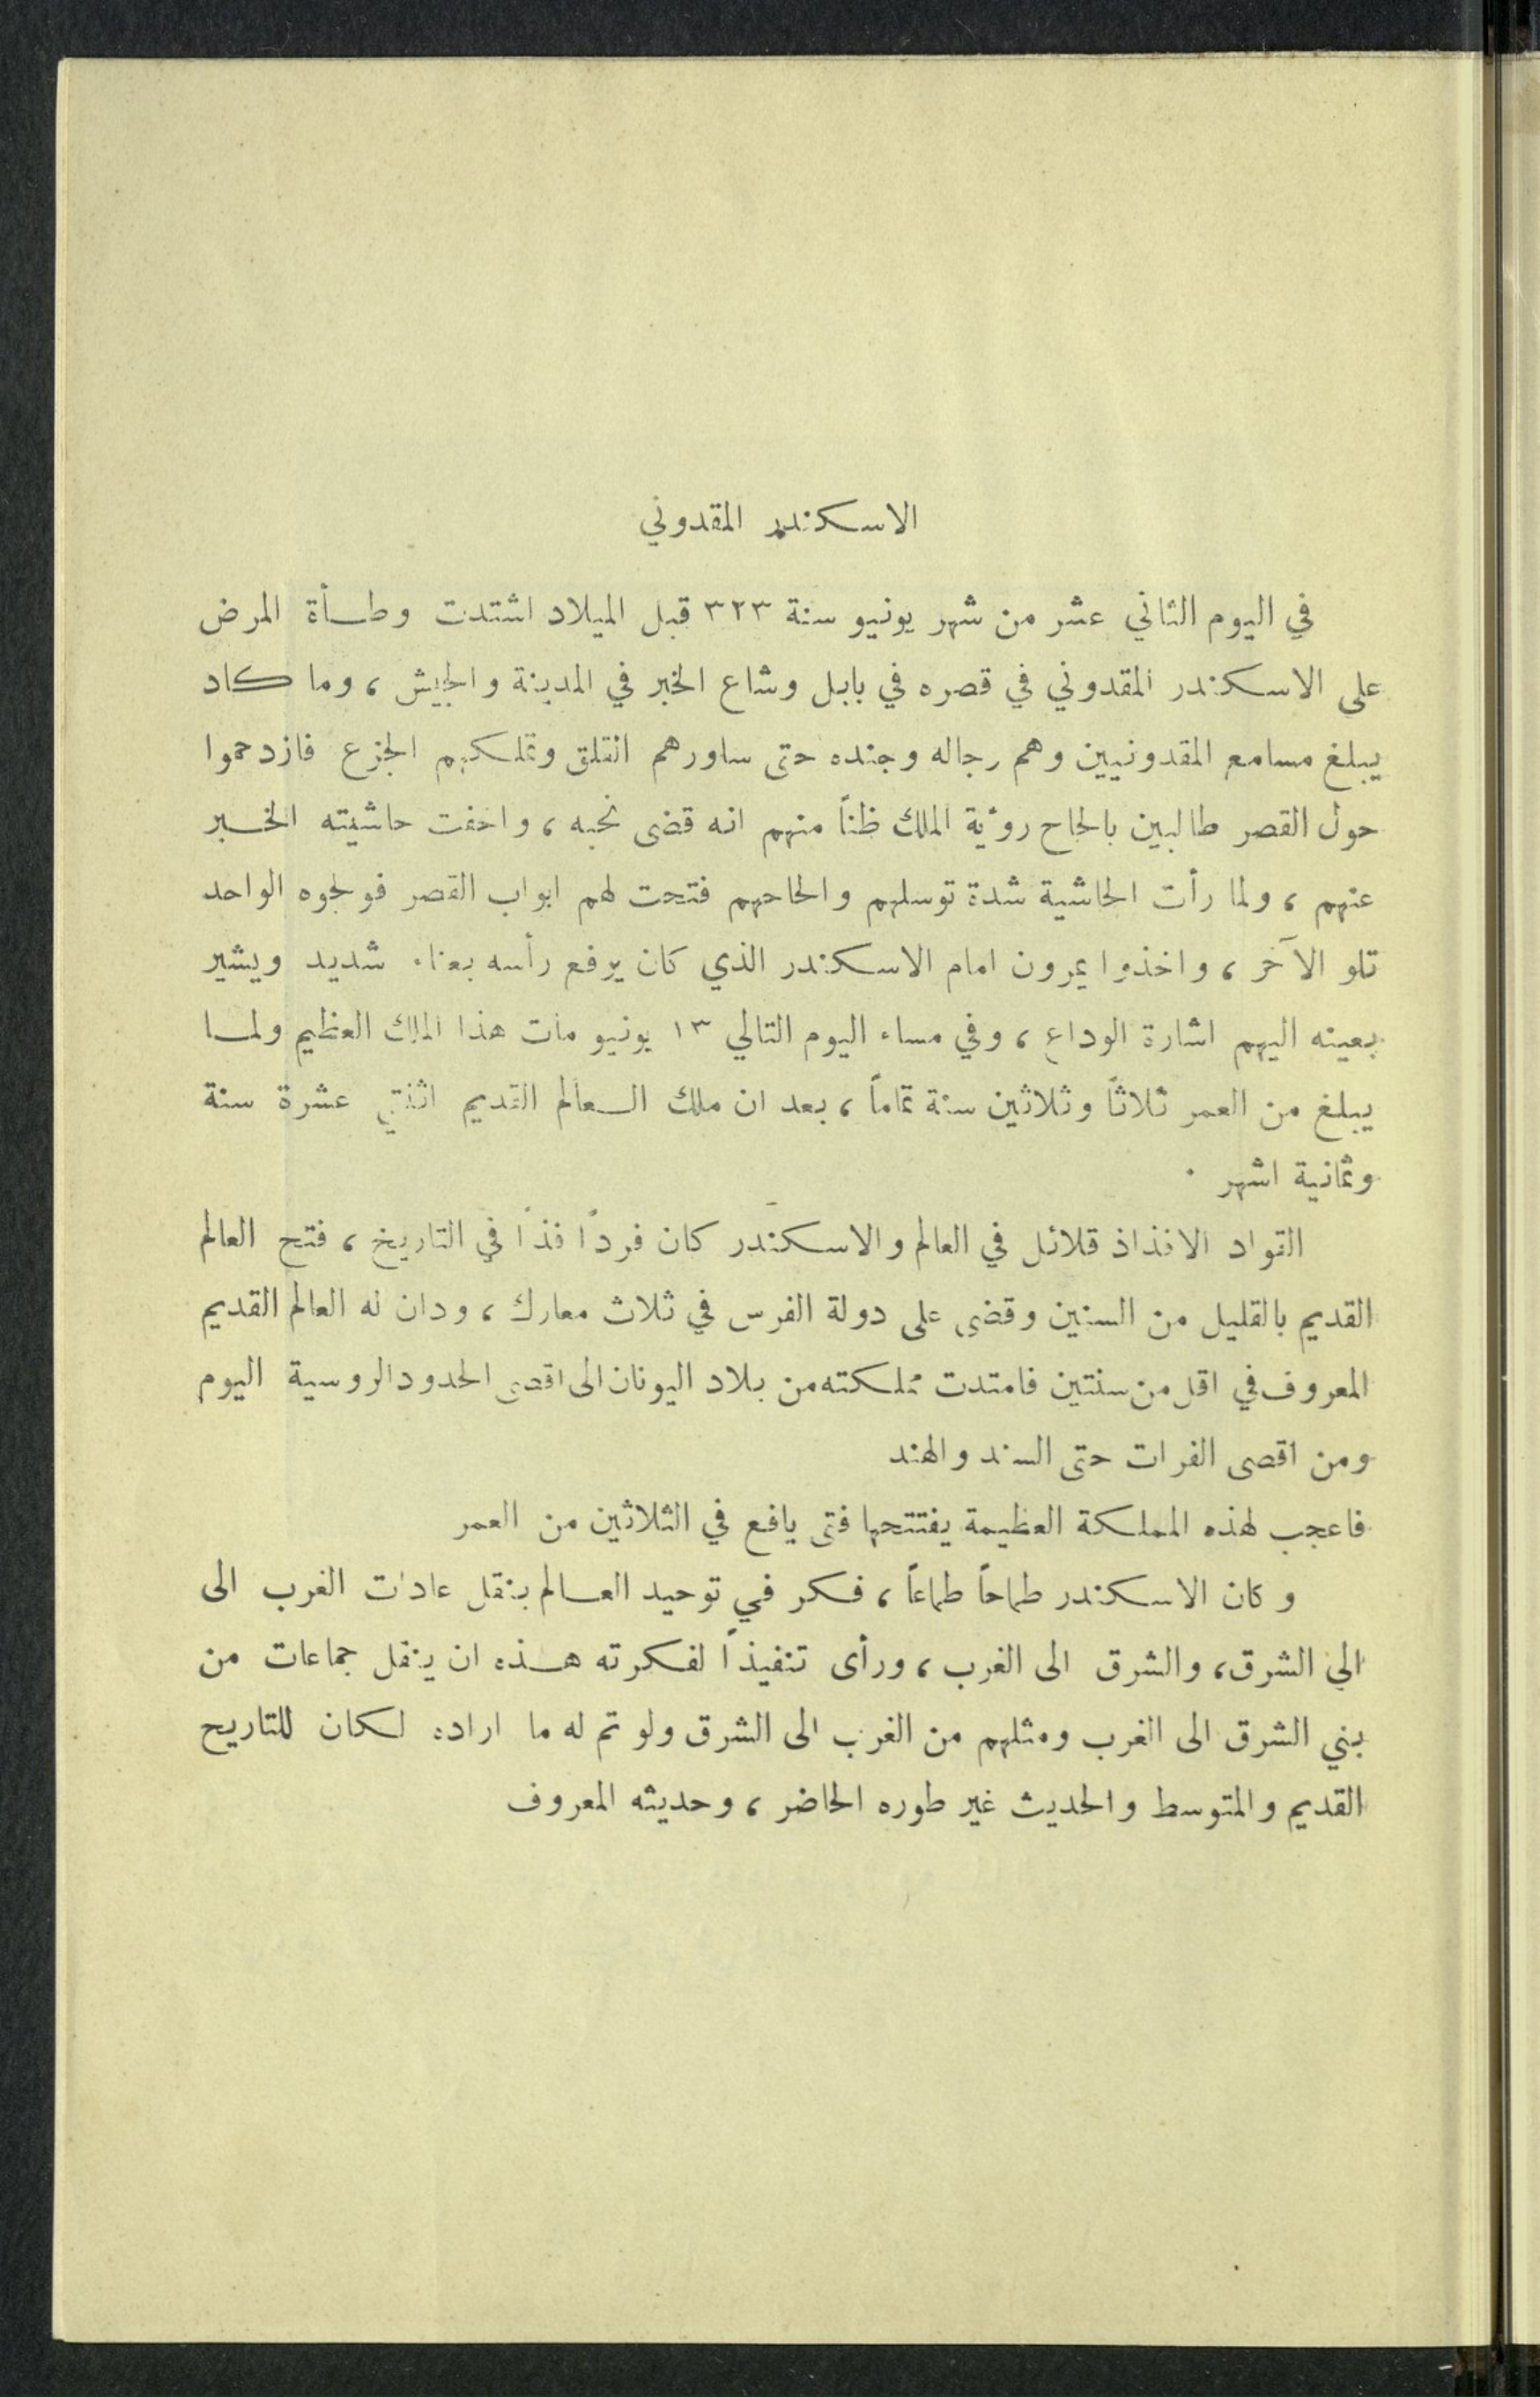 الاسكندر المقدوني
في اليوم الثاني عشر من شهر يونيو سنة ٣٢٣ قبل الميلاد اشتدت وطأة المرض
على الاسكندر المقدوني في قصره في بابل وشاع الخبر في المدينة والجيش ، وما كاد
يبلغ مسامع المقدونيين وهم رجاله وجنده حتى ساورهم القلق وتملكهم الجزع فازدحموا
حول القصر طالبين بالحاح رؤية الملك ظناً منهم انه قضى نحبه ، واخفت حاشيته الخبر
عنهم ، ولما رأت الحاشية شدة توسلهم والحاحهم فتحت لهم ابواب القصر فولجوه الواحد
تلو الآخر ، واخذوا يمرون امام الاسكندر الذي كان يرفع رأسه بعناء شديد ويشير
بعينه اليهم اشارة الوداع ، وفي مساء اليوم التالي ١٣ يونيو مات هذا الملك العظيم ولما
يبلغ من العمر ثلاثاً وثلاثين سنة تماماً ، بعد ان ملك العالم القديم اثنتي عشرة سنة
وثمانية اشهر .
القواد الافذاذ قلائل في العالم والاسكندر كان فرداً فذاً في التاريخ ، فتح العالم
القديم بالقليل من السنين وقضى على دولة الفرس في ثلاث معارك ، ودان له العالم القديم
المعروف في اقل من سنتين فامتدت مملكته من بلاد اليونان الى اقصى الحدود الروسية اليوم
ومن اقصى الفرات حتى السند والهند
فاعجب لهذه المملكة العظيمة يفتتحها فتى يافع في الثلاثين من العمر
وكان الاسكندر طماحاً طماعاً ، فكر في توحيد العالم بنقل عادات الغرب الى
الى الشرق ، والشرق الى الغرب ، ورأى تنفيذاً لفكرته هذه ان ينقل جماعات من
بني الشرق الى الغرب ومثلهم من الغرب الى الشرق ولو تم له ما اراده لكان للتاريح
القديم والمتوسط والحديث غير طوره الحاضر ، وحديثه المعروف